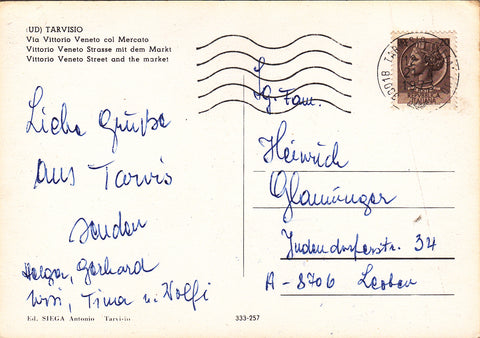 (UD) TARVISIO
Via Vittorio Veneto col Mercato
Vittorio Veneto Strasse mit dem Markt
Vittorio Veneto Street and the market
Liebe Grüße
aus Tarvis
senden
Gerhard
Tima u. Wolfi
Lg. Fam.
Heinrich
Judendorferstr. 34
A - 8706 Leoben
Ed. SIEGA Antonio Tarvisio
333-257
33018 TARVISIO
ITALIANA